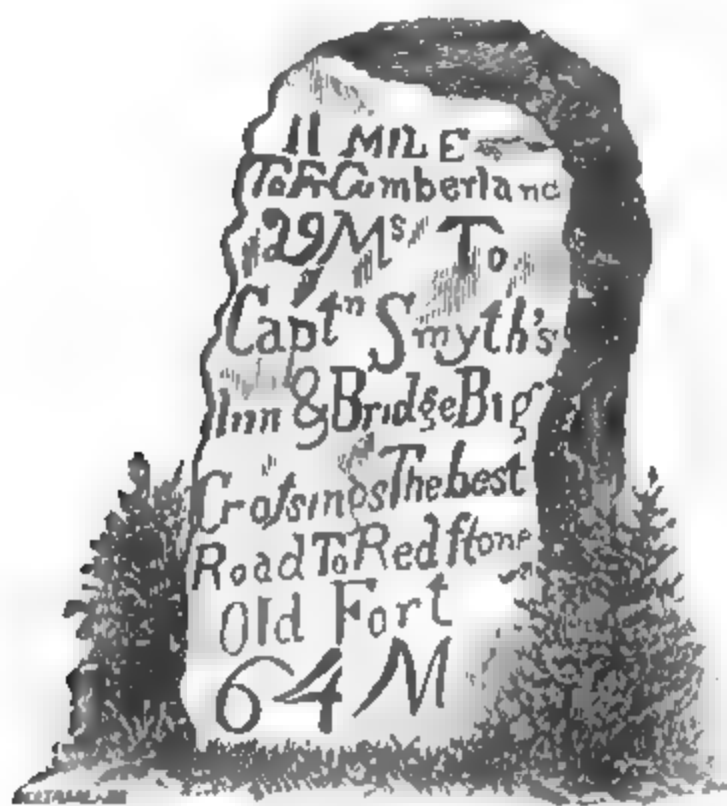 11 MILE
To Fr Cumberland
29 Ms To
Captn Smyth's
Inn & Bridge Big
Crofsings The best
Road To Redſtone
Old Fort
64 M